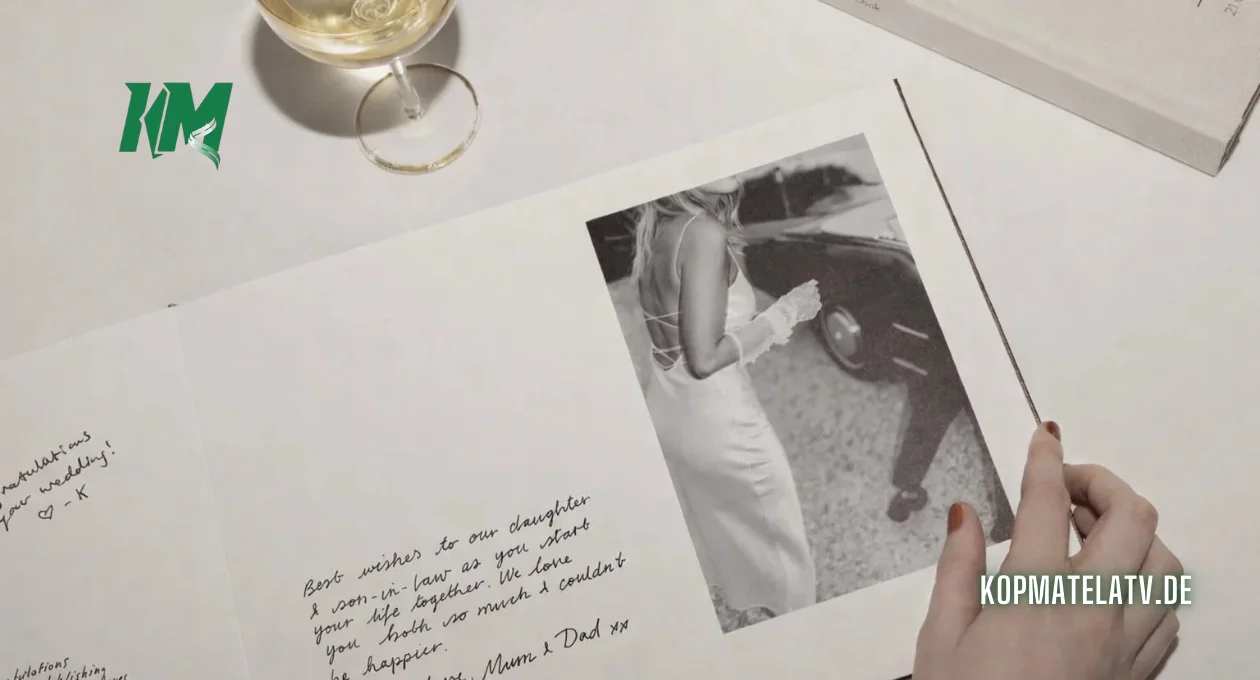 KM
ratulations
your wedding!
♡ - K
Best wishes to our daughter
& son-in-law as you start
your life together. We love
you both so much & couldn't
be happier.
Mum & Dad xx
tulations
KOPMATELATV.DE